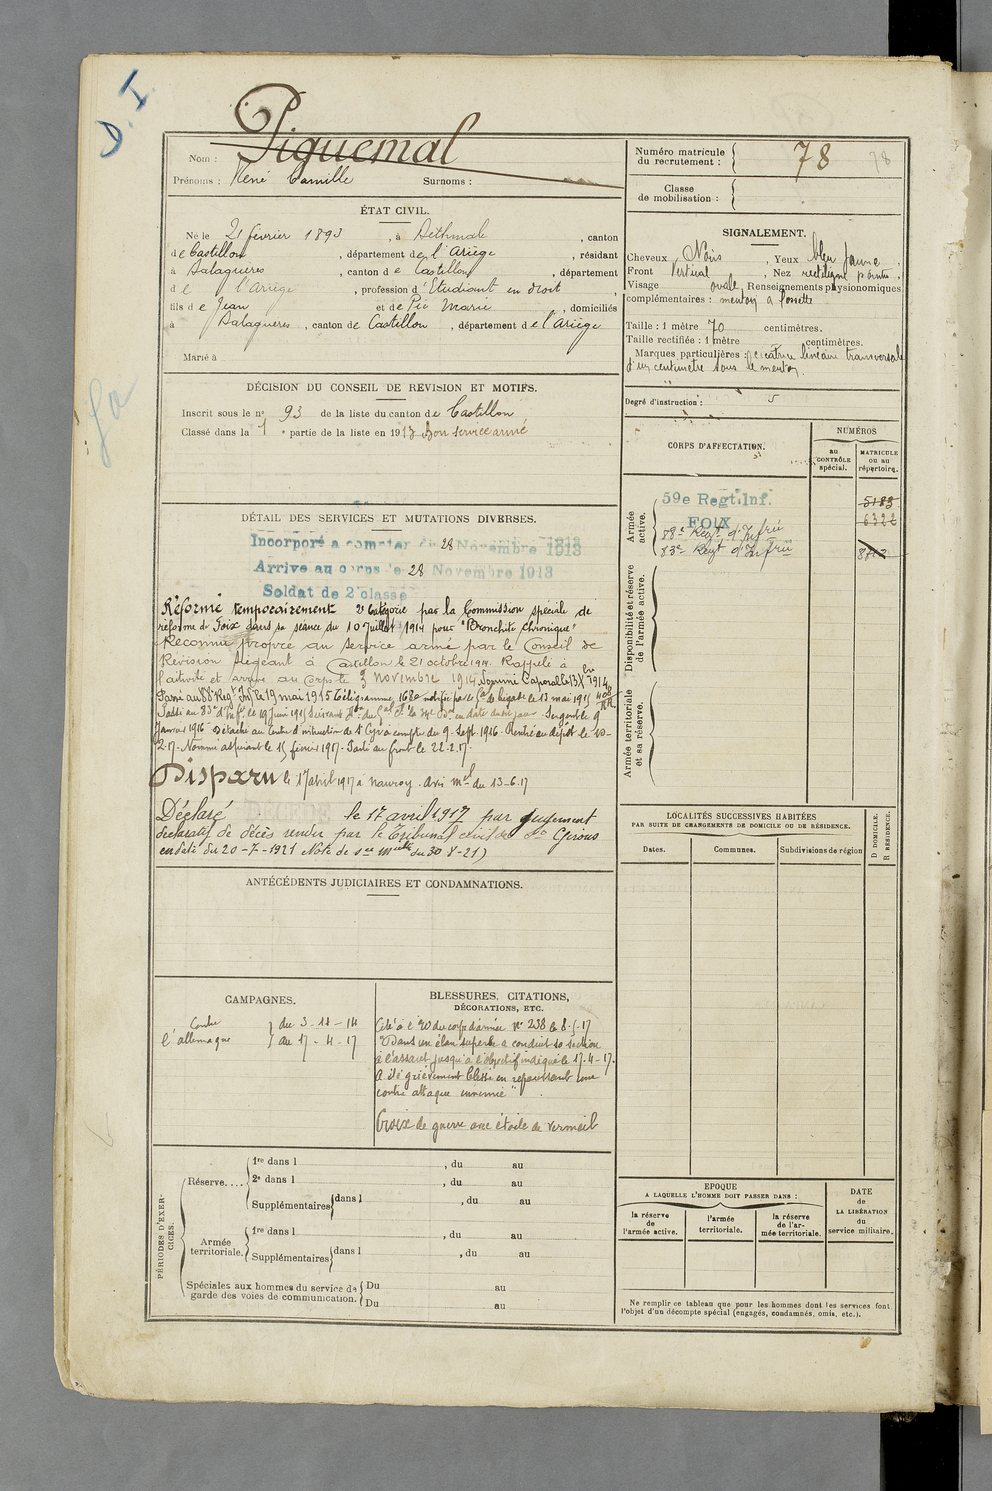 D. I
Piquemal
Nom :
Prénoms : René Camille Surnoms :
Numéro matricule du recrutement : 78 78
Classe de mobilisation :
ÉTAT CIVIL.
Né le 21 février 1893, à Bethmale, canton
de Castillon, département de l'Ariège, résidant
à Balaguères, canton de Castillon, département
de l'Ariège, profession d'Etudiant en droit
fils de Jean et de Pic Marie, domiciliés
à Balaguères, canton de Castillon, département de l'Ariège
Marié à
SIGNALEMENT.
Cheveux Noirs, Yeux bleu jaune.
Front Vertical, Nez rectiligne pointu.
Visage ovale Renseignements physionomiques
complémentaires : menton à fossette
Taille : 1 mètre 70 centimètres.
Taille rectifiée : 1 mètre centimètres.
Marques particulières : cicatrice linéaire transversale
d'un centimètre sous le menton.
Degré d'instruction : 5
DÉCISION DU CONSEIL DE REVISION ET MOTIFS.
Inscrit sous le no 93 de la liste du canton de Castillon
Classé dans la 1e partie de la liste en 1913 Bon service armé
CORPS D'AFFECTATION.
NUMÉROS
au CONTRÔLE spécial.
MATRICULE ou au répertoire.
Armée active.
59e Regt. Inf. 5183
FOIX 6322
88e Regt d'Infrie
83e Regt d'Infrie
Disponibilité et réserve de l'armée active.
Armée territoriale et sa réserve.
DÉTAIL DES SERVICES ET MUTATIONS DIVERSES.
Incorporé a compter du 28 Novembre 1913
Arrivé au corps le 28 Novembre 1913
Soldat de 2e classe
Réformé temporairement 2e Catégorie par la Commission spéciale de
réforme de Foix dans sa séance du 10 Juillet 1914 pour "Bronchite chronique"
Reconnu propre au service armé par le Conseil de
Révision siégeant à Castillon le 21 octobre 1914. Rappelé à
l'activité et arrivé au Corps le 3 novembre 1914. Nommé Caporal le 13 Xbre 1914
Passé au 88e Regt Inf. le 19 mai 1915 Télégramme 1680 notifié par le Gal de brigade le 13 mai 1915
Passé au 83e d'Inf. le 19 Juin 1915 Sergent le 9
Janvier 1916 Détaché au Centre d'instruction de St Cyr à compter du 9 Sept. 1916. Rentré au dépôt le 10-
2-17. Nommé adjudant le 15 février 1917. Parti au front le 22-2-17.
Disparu le 17 avril 1917 à Nauroy. Avis mel du 13-6-17
Déclaré DÉCÉDÉ le 17 avril 1917 par jugement
déclaratif de décès rendu par le Tribunal civil de St Girons
en date du 20-7-1921
ANTÉCÉDENTS JUDICIAIRES ET CONDAMNATIONS.
LOCALITÉS SUCCESSIVES HABITÉES
PAR SUITE DE CHANGEMENTS DE DOMICILE OU DE RÉSIDENCE.
Dates. Communes. Subdivisions de région
D DOMICILE. R RÉSIDENCE.
CAMPAGNES.
Contre l'allemagne } du 3-11-14
} au 17-4-17
BLESSURES, CITATIONS,
DÉCORATIONS, ETC.
Cité à l'O du corps d'armée No 238 le 8-5-17
"Dans un élan superbe a conduit sa section
à l'assaut jusqu'à l'objectif indiqué le 17-4-17.
A été grièvement blessé en repoussant une
contre attaque ennemie".
Croix de guerre avec étoile de vermeil
PÉRIODES D'EXERCICES.
Réserve.... 1re dans l , du au
2e dans l , du au
Supplémentaires dans l , du au
Armée territoriale. 1re dans l , du au
Supplémentaires dans l , du au
Spéciales aux hommes du service de garde des voies de communication. Du au
Du au
EPOQUE
A LAQUELLE L'HOMME DOIT PASSER DANS :
la réserve de l'armée active.
l'armée territoriale.
la réserve de l'armée territoriale.
DATE de LA LIBÉRATION du service militaire.
Ne remplir ce tableau que pour les hommes dont les services font
l'objet d'un décompte spécial (engagés, condamnés, omis, etc.).